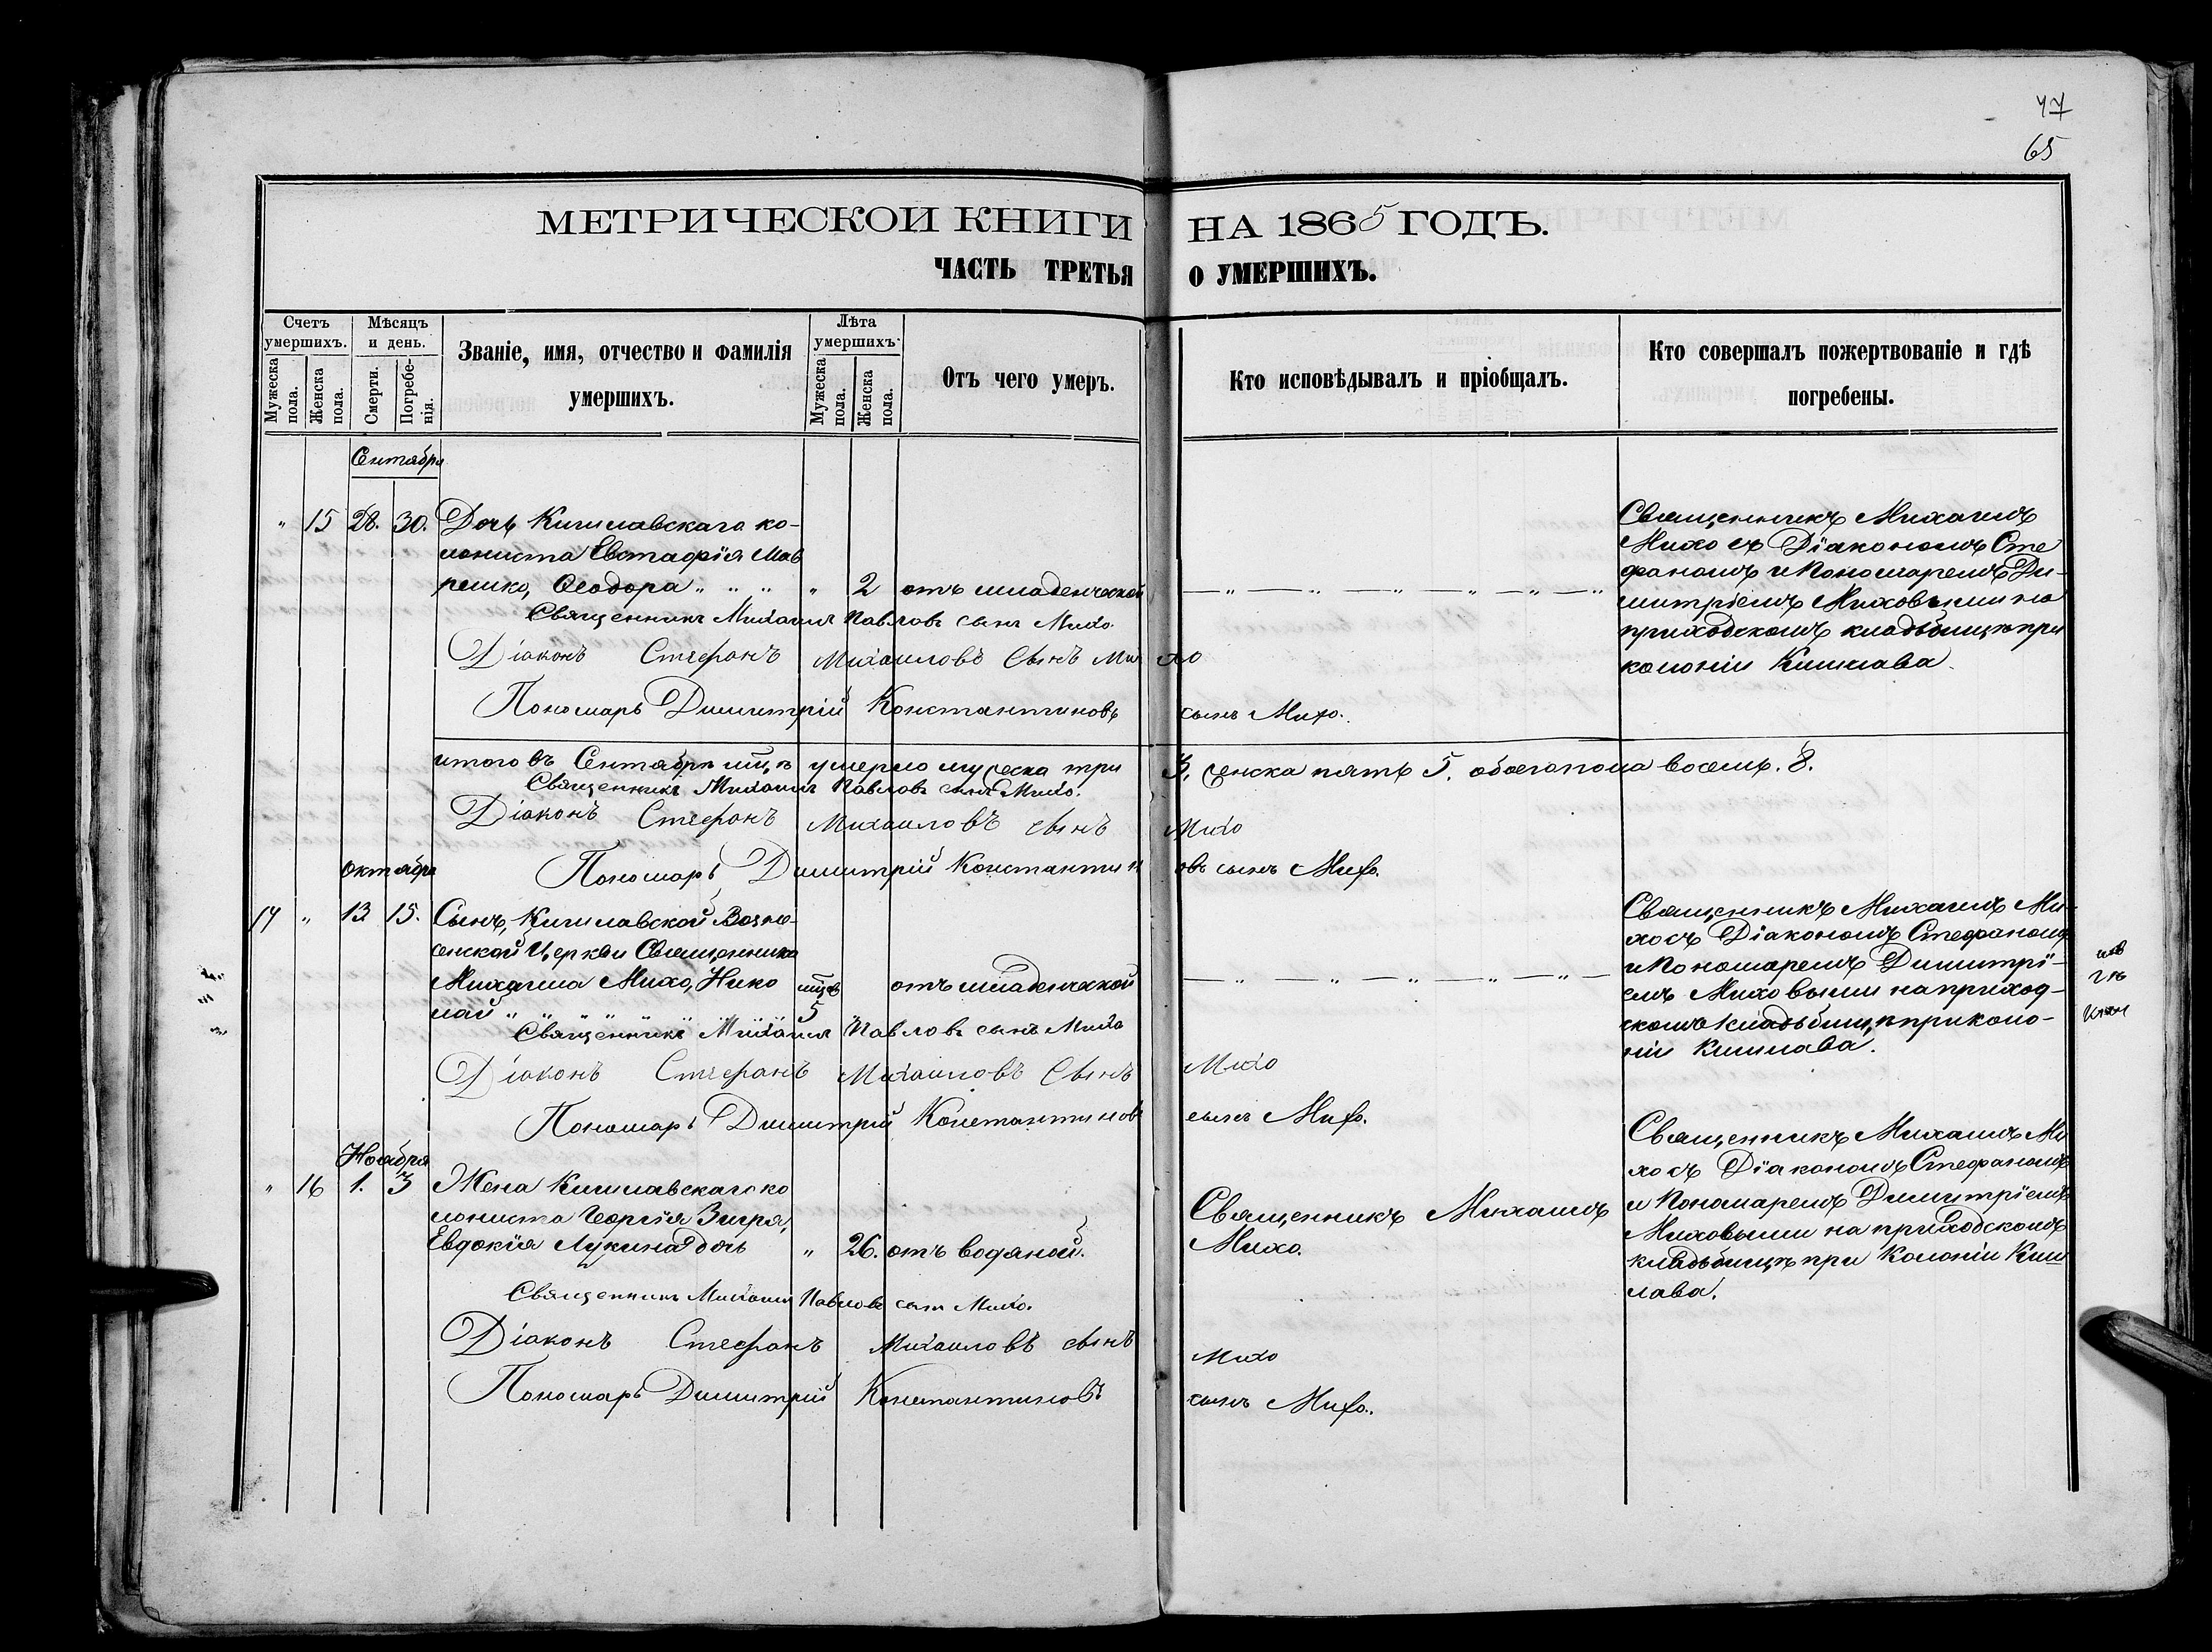 77
65
МЕТРИЧЕСКОЙ КНИГИ НА 1865 ГОДЪ.
ЧАСТЬ ТРЕТЬЯ О УМЕРШИХЪ.
Счетъ умершихъ.
Мужеска пола.
Женска пола.
Мѣсяцъ и день.
Смерти.
Погребе-нія.
Званіе, имя, отчество и фамилія
умершихъ.
Лѣта умершихъ.
Мужеска пола.
Женска пола.
Отъ чего умеръ.
Кто исповѣдывалъ и пріобщалъ.
Кто совершалъ пожертвованіе и гдѣ
погребены.
Сентября
" 15 28. 30. Дочь Кишлавскаго ко-
лониста Евстафія Мав
решко, Ѳеодора " " " " 2 отъ младенческой
Священникъ Михаилъ
Михо съ Діакономъ Сте
фаномъ и Пономаремъ Ди-
митріемъ Миховыми на
приходскомъ кладбищѣ при
колоніи Кишлава.
Священникъ Михаилъ Павловъ сынъ Михо.
Діаконъ Стефанъ Михаиловъ Сынъ Михо
Пономарь Димитрій Константиновъ сынъ Михо.
итого въ Сентябрѣ мцѣ умерло мужеска три 3, женска пять 5. обоего пола восемь. 8.
Священникъ Михаилъ Павловъ сынъ Михо.
Діаконъ Стефанъ Михаиловъ сынъ Михо
Пономарь Димитрій Константиновъ сынъ Михо.
Октября
" 13 15. Сынъ, Кишлавской Возне-
сенской Церкви Священника
Михаила Михо, Нико мцев отъ младенческой
лай " " " " " 5
Священникъ Михаилъ Ми-
хо съ Діакономъ Стефаномъ
и Пономаремъ Димитрі-
емъ Миховыми на приход-
скомъ кладбищѣ при коло-
ніи Кишлава.
Священникъ Михаилъ Павловъ сынъ Михо
Діаконъ Стефанъ Михаиловъ Сынъ Михо
Пономарь Димитрій Константиновъ сынъ Михо.
Ноября
" 16 1. 3 Жена Кишлавскаго ко
лониста Георгія Згиря,
Евдокія Лукина дочь " 26. отъ водяной.
Священникъ Михаилъ
Михо.
Священникъ Михаилъ Ми
хо съ Діакономъ Стефаномъ
и Пономаремъ Димитріемъ
Миховыми на приходскомъ
кладбищѣ при Колоніи Киш
лава.
Священникъ Михаилъ Павловъ сынъ Михо.
Діаконъ Стефанъ Михаиловъ сынъ Михо
Пономарь Димитрій Константиновъ сынъ Михо.